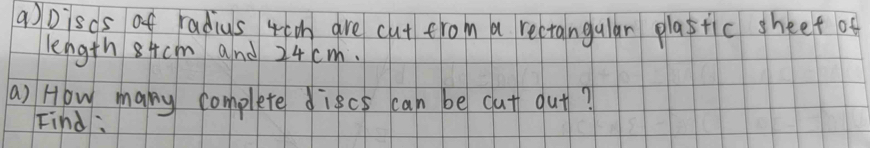 a) Discs of radius 4cm are cut from a rectangular plastic sheet of
length 84cm and 24cm.
a) How many complete discs can be cut out?
Find: